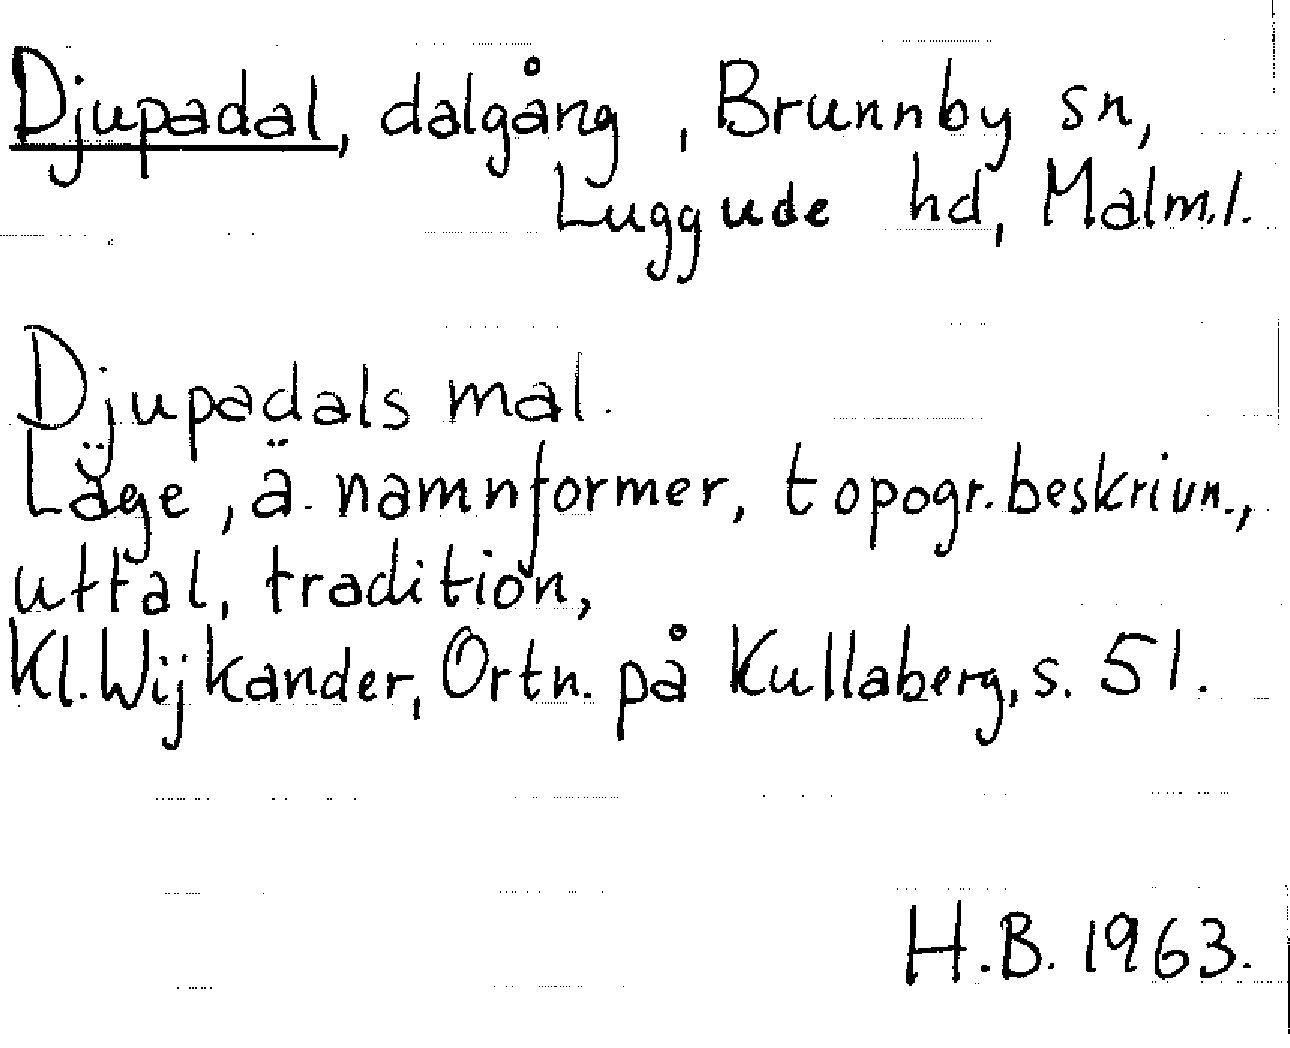 Djupadal, dalgång, Brunnby sn,
Luggude hd, Malm.l.
Djupadals mal.
Läge, ä. namnformer, topogr.beskrivn.,
uttal, tradition,
Kl.Wijkander, Ortn. på Kullaberg, s. 51.
H.B. 1963.